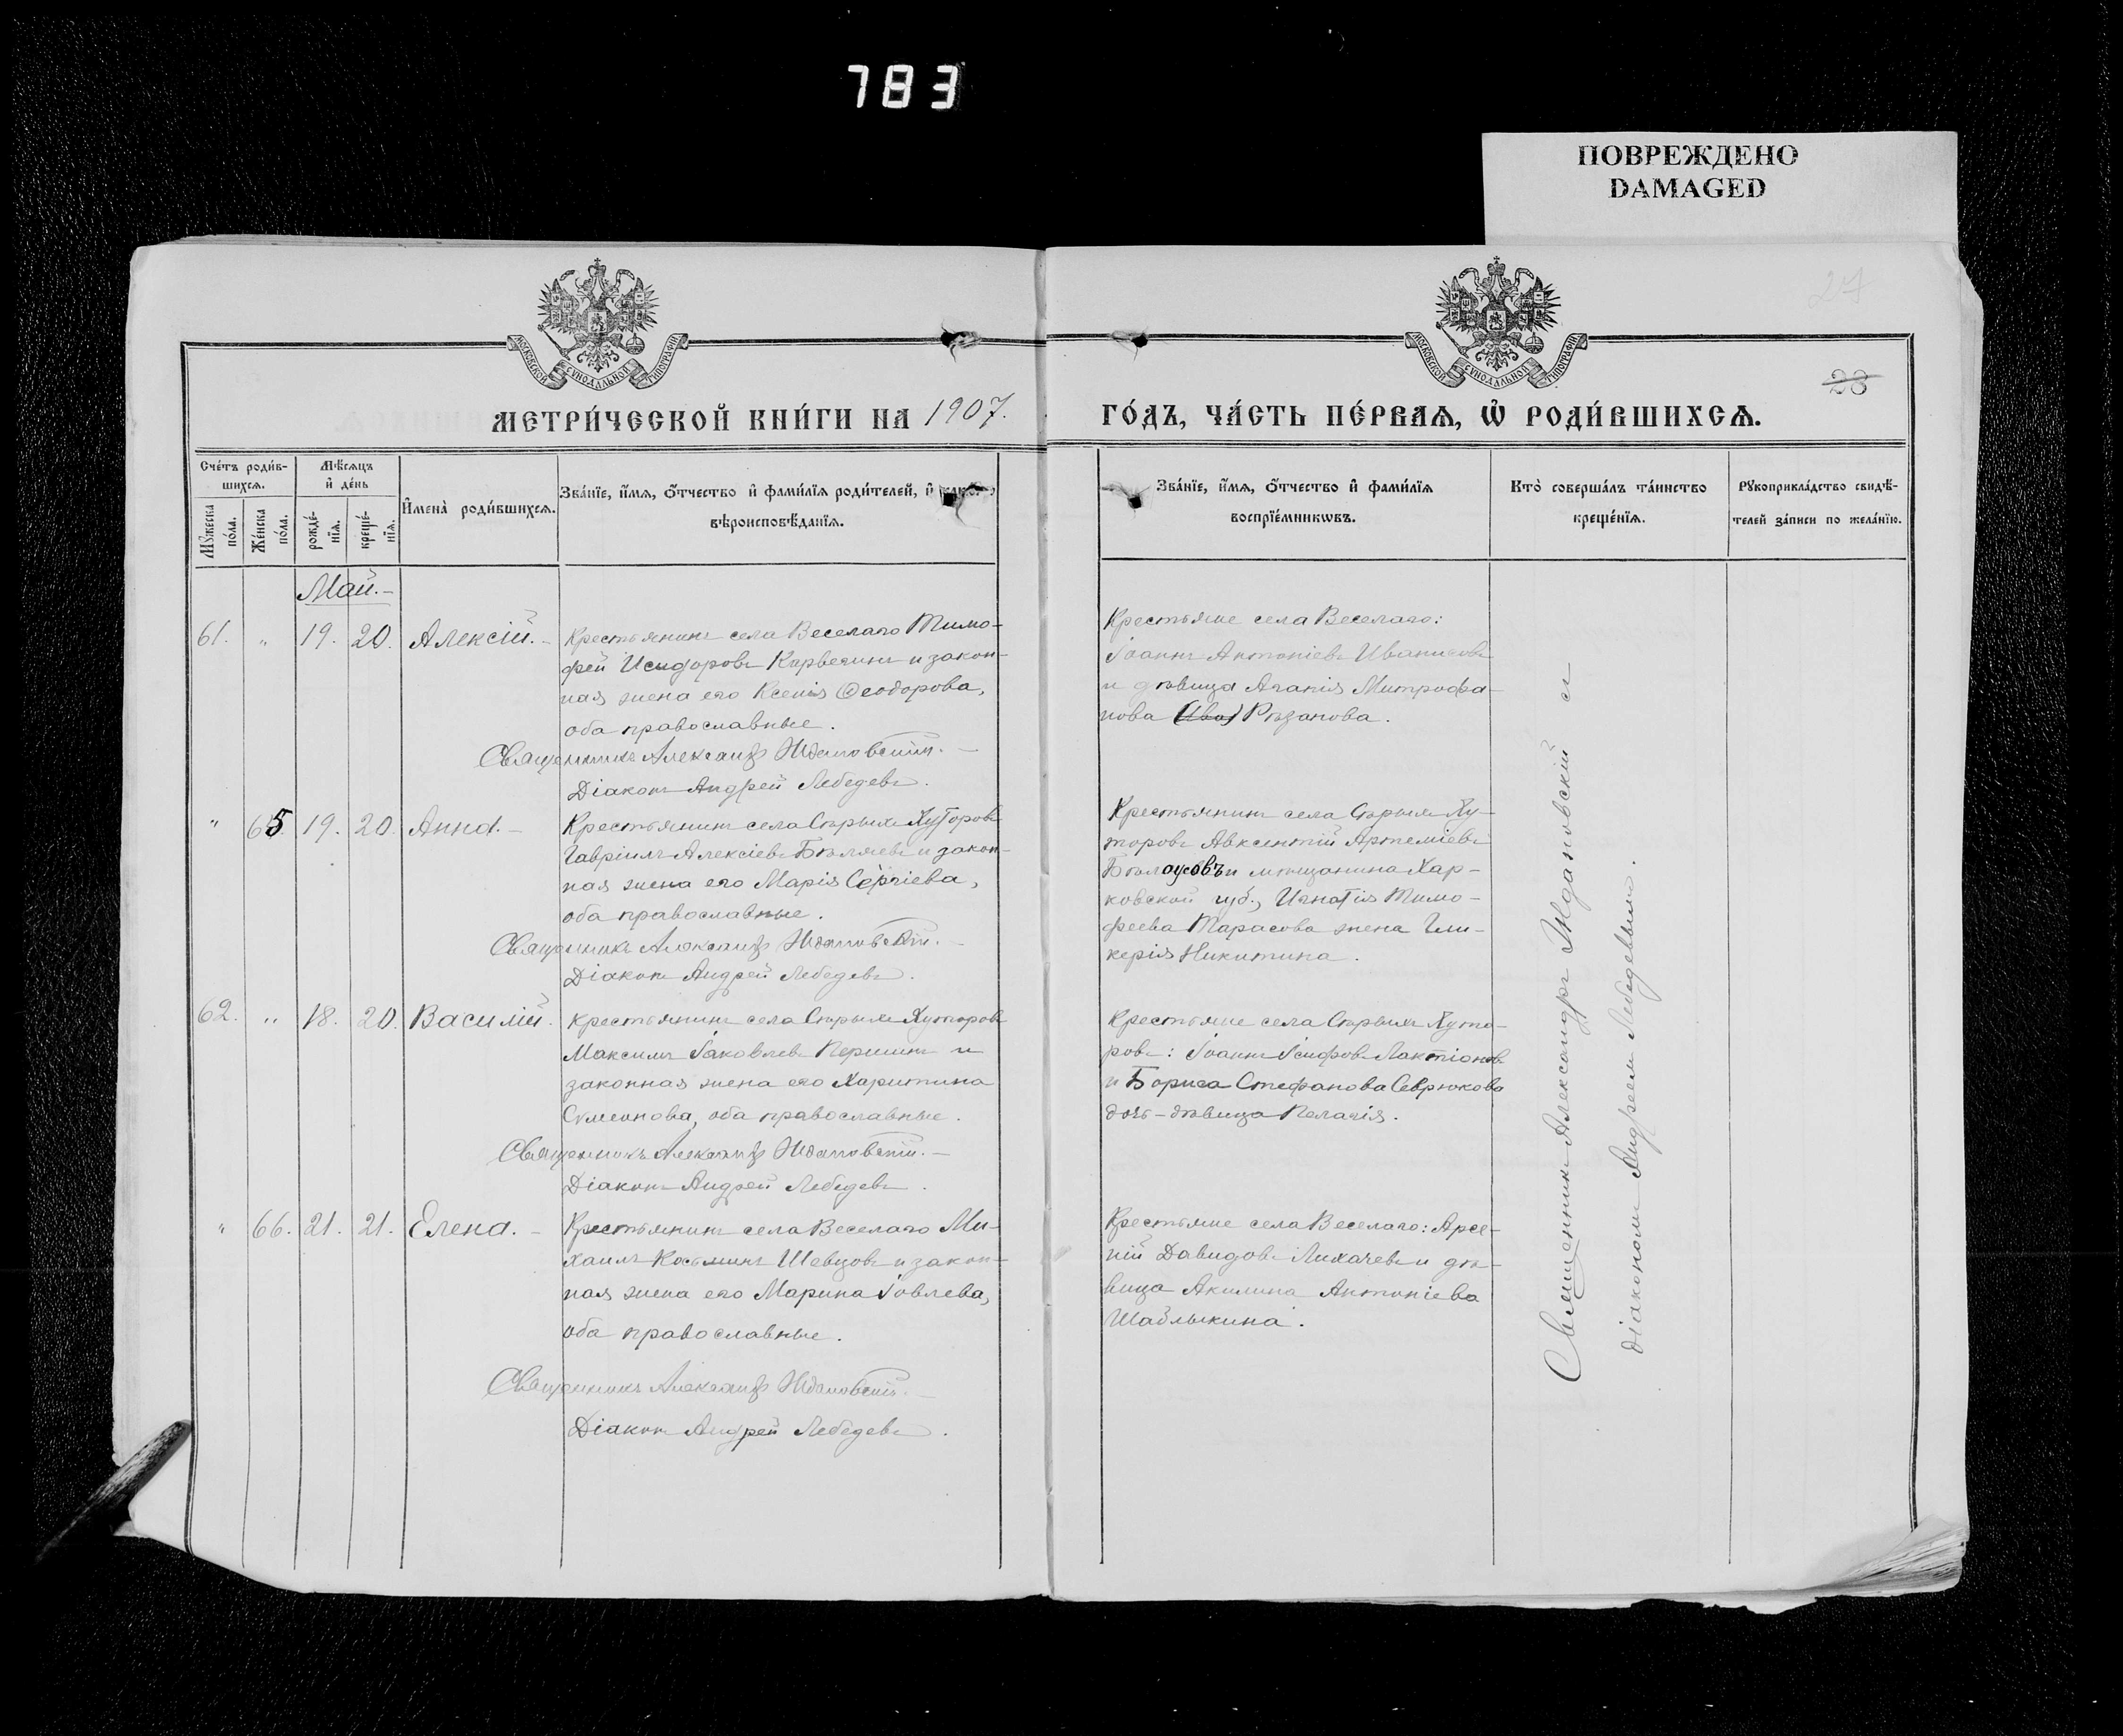 783
ПОВРЕЖДЕНО
DAMAGED
27
МОСКОВСКОЙ СѴНОДАЛЬНОЙ ТИПОГРАФІИ
МОСКОВСКОЙ СѴНОДАЛЬНОЙ ТИПОГРАФІИ
28
МЕТРИ́ЧЕСКОЙ КНИ́ГИ НА 1907.
ГО́ДЪ, ЧА́СТЬ ПЕ́РВАѦ, Ѽ РОДИ́ВШИХСѦ.
Сче́тъ роди́в-
шихсѧ.
Мꙋ́жеска
по́ла.
Же́нска
по́ла.
Мѣ́сѧцъ
и҆ де́нь
рожде́-
нїѧ.
креще́-
нїѧ.
И҆мена̀ роди́вшихсѧ.
Зва́нїе, и҆́мѧ, ѻ҆́тчество и҆ фами́лїѧ роди́телей, и҆ како́гѡ
вѣроисповѣ́данїѧ.
Зва́нїе, и҆́мѧ, ѻ҆́тчество и҆ фами́лїѧ
воспрїе́мникѡвъ.
Кто̀ соверша́лъ та́инство
креще́нїѧ.
Рꙋкоприкла́дство свидѣ́-
телей за́писи по жела́нїю.
Май.-
61. " 19. 20. Алексій.-
Крестьянинъ села Веселаго Тимо-
фей Исидоровъ и закон-
ная жена его Ксенія Ѳеодорова,
оба православные.
Священникъ Александръ Ждановскій.-
Діаконъ Андрей Лебедевъ.
Крестьяне села Веселаго:
Іоаннъ Антоніевъ
и дѣвица Агапія Митрофа-
нова (Ива) Рѣзанова.
" 65 19. 20. Анна.-
Крестьянинъ села Сѣрыхъ Хуторовъ
Гавріилъ Алексіевъ Бѣляевъ и закон-
ная жена его Марія Сергіева,
оба православные.
Священникъ Александръ Ждановскій.-
Діаконъ Андрей Лебедевъ.
Крестьянинъ села Сѣрыхъ Ху-
торовъ Авксентій Артеміевъ
Бѣлоусовъ и мѣщанина Хар-
ковской губ., Игнатія Тимо-
феева Тарасова жена Гли-
керія Никитина.
62. " 18. 20. Василій.
Крестьянинъ села Сѣрыхъ Хуторовъ
Максимъ Іаковлевъ Першинъ и
законная жена его Харитина
Сѵмеонова, оба православные.
Священникъ Александръ Ждановскій.-
Діаконъ Андрей Лебедевъ.
Крестьяне села Сѣрыхъ Хуто-
ровъ: Іоаннъ Іосифовъ Лактіоновъ
и Бориса Стефанова Севрюкова
дочь-дѣвица Пелагія.
" 66. 21. 21. Елена.-
Крестьянинъ села Веселаго Ми-
хаилъ Косьминъ Шевцовъ и закон-
ная жена его Марина Іовлева,
оба православные.
Священникъ Александръ Ждановскій.-
Діаконъ Андрей Лебедевъ.
Крестьяне села Веселаго: Арсе-
ній Давидовъ Лихачевъ и дѣ-
вица Акилина Антоніева
Шаблыкина.
Священникъ Александръ Ждановскій съ
діакономъ Андреемъ Лебедевымъ.